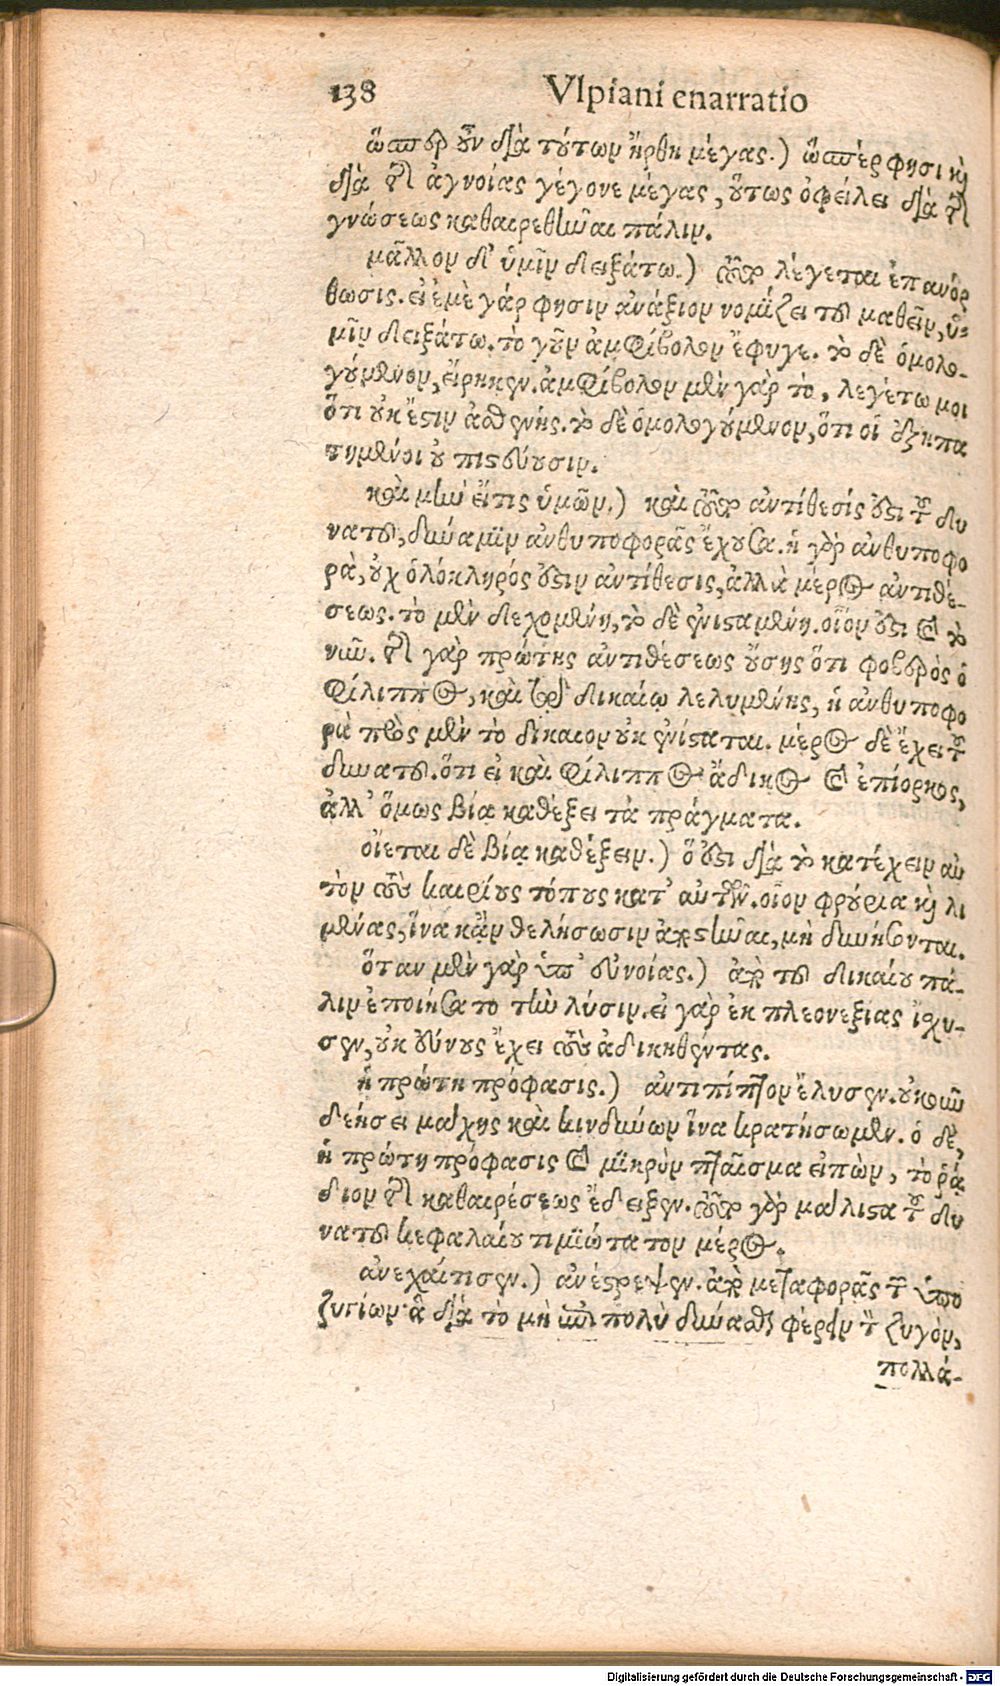 138 Vlpiani enarratio
ὥσπερ οὖν διὰ τούτων ἤρθη μέγας.) ὥσπέρ φησι καὶ
διὰ τῆς ἀγνοίας γέγονε μέγας, οὕτως ὀφείλει διὰ τῆς
γνώσεως καθαιρεθῆναι πάλιν.
μᾶλλον δ’ ὑμῖν δειξάτω.) τοῦτο λέγεται ἐπανόρ
θωσις. εἰ ἐμὲ γάρ φησιν ἀνάξιον νομίζει τοῦ μαθεῖν, ὑ-
μῖν δειξάτω. τὸ γοῦν ἀμφίβολον ἔφυγε. τὸ δὲ ὁμολο-
γούμενον, εἴρηκεν. ἀμφίβολον μὲν γὰρ τὸ, λεγέτω μοι
ὅτι οὐκ ἔστιν ἀσθενής. τὸ δὲ ὁμολογούμενον, ὅτι οἱ ἐξηπα
τημένοι οὐ πιστεύουσιν.
καὶ μὴν εἴ τις ὑμῶν.) καὶ τοῦτο ἀντίθεσίς ἐστι τοῦ δυ
νατοῦ, δύναμιν ἀνθυποφορᾶς ἔχουσα. ἡ γὰρ ἀνθυποφο
ρὰ, οὐχ ὁλόκληρός ἐστιν ἀντίθεσις, ἀλλὰ μέρος ἀντιθέ-
σεως. τὸ μὲν δεχομένη, τὸ δὲ ἐνισταμένη. οἷόν ἐστι καὶ τὸ
νῦν. τῆς γὰρ πρώτης ἀντιθέσεως οὔσης ὅτι φοβερὸς ὁ
Φίλιππος, καὶ τῷ δικαίῳ λελυμένης, ἡ ἀνθυποφο
ρὰ πρὸς μὲν τὸ δίκαιον οὐκ ἐνίσταται. μέρος δὲ ἔχει τοῦ
δυνατοῦ. ὅτι εἰ καὶ Φίλιππος ἄδικος καὶ ἐπίορκος,
ἀλλ’ ὅμως βίᾳ καθέξει τὰ πράγματα.
οἴεται δὲ βίᾳ καθέξειν.) ὅ ἐστι διὰ τὸ κατέχειν αὐ
τὸν τοὺς καιρίους τόπους κατ’ αὐτῶν. οἷον φρούρια καὶ λι
μένας, ἵνα κἂν θελήσωσιν ἀποστῆναι, μὴ δυνήσονται.
ὅταν μὲν γὰρ ὑπ’ εὐνοίας.) ἀπὸ τοῦ δικαίου πά-
λιν ἐποιήσατο τὴν λύσιν. εἰ γὰρ ἐκ πλεονεξίας ἴσχυ-
σεν, οὐκ εὔνους ἔχει τοὺς ἀδικηθέντας.
ἡ πρώτη πρόφασις.) ἀντιπίπτον ἔλυσεν. οὐκοῦν
δεήσει μάχης καὶ κινδύνων ἵνα κρατήσωμεν. ὁ δὲ,
ἡ πρώτη πρόφασις καὶ μικρὸν πταῖσμα εἰπὼν, τὸ ῥᾴ
διον τῆς καθαιρέσεως ἔδειξεν. τοῦτο γὰρ μάλιστα τοῦ δυ
νατοῦ κεφαλαίου τιμιώτατον μέρος.
ἀνεχαίτισεν.) ἀνέστρεψεν. ἀπὸ μεταφορᾶς τῶν ὑπο
ζυγίων· ἃ διὰ τὸ μὴ ἐπὶ πολὺ δύνασθαι φέρειν τὸν ζυγὸν,
πολλά-
Digitalisierung gefördert durch die Deutsche Forschungsgemeinschaft - DFG